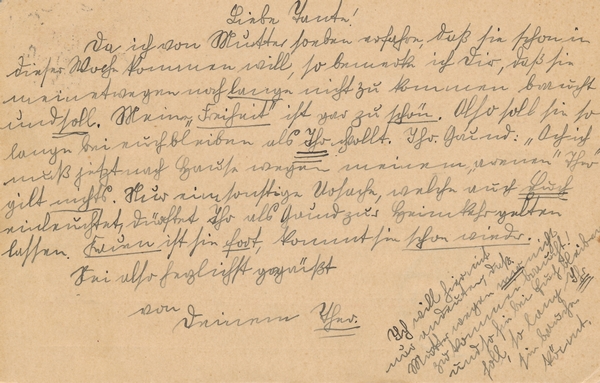 Liebe Tante!
Da ich von Mutter soeben erfahre, daß sie schon in
dieser Woche kommen will, so bemerke ich Dir, daß sie
meinetwegen noch lange nicht zu kommen braucht
und soll. Meine „Freiheit" ist gar zu schön. Also soll sie so
lange bei euch bleiben als Ihr wollt. Ihr Grund: „Ach ich
muß jetzt nach Hause wegen meinem „armen" Theo"
gilt nichts. Nur eine sonstige Ursache, welche auch Euch
einleuchtet, dürftet Ihr als Grund zur Heimkehr gelten
lassen. Kaum ist sie fort, kommt sie schon wieder.
Sei also herzlichst gegrüßt
von
Deinem Theo.
Ich will hiermit
nur andeuten, daß
Mutter wegen mir nicht
zu kommen braucht!
und so sie bei Euch bleiben
soll, so lang Ihr
sie
könnt.